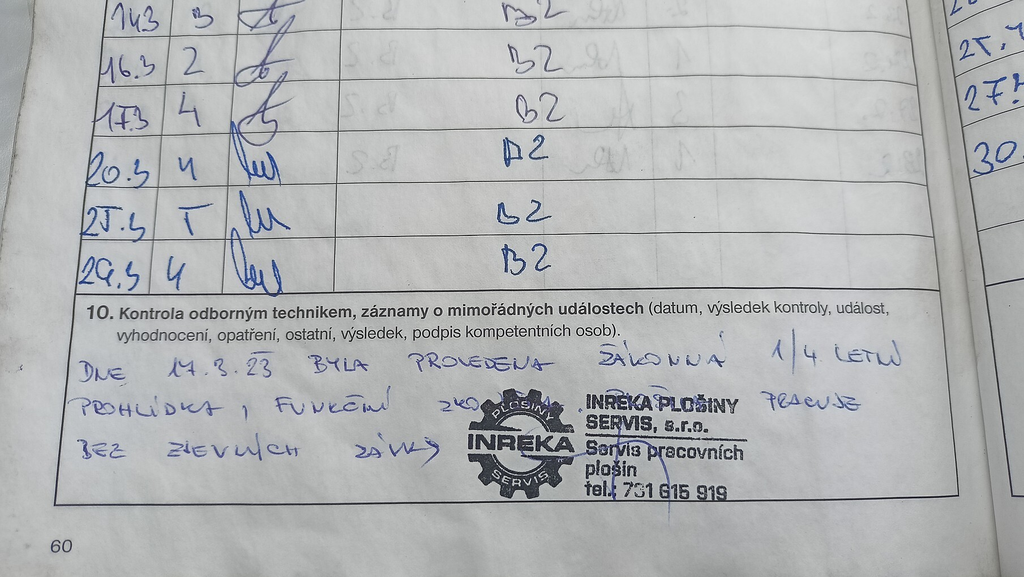 14.3 3 B2
16.3 2 B2
17.3 4 B2
20.3 4 B2
25.3 5 B2
29.3 4 B2
25.
27.
30.
10. Kontrola odborným technikem, záznamy o mimořádných událostech (datum, výsledek kontroly, událost,
vyhodnocení, opatření, ostatní, výsledek, podpis kompetentních osob).
DNE 17.3.23 BYLA PROVEDENA ZÁKONNÁ 1/4 LETNÍ
PROHLÍDKA, FUNKČNÍ PRACUJE
BEZ ZJEVNÝCH ZÁVAD
PLOŠINY
INREKA
SERVIS
INREKA PLOŠINY
SERVIS, s.r.o.
Servis pracovních
plošin
tel.: 731 615 919
60